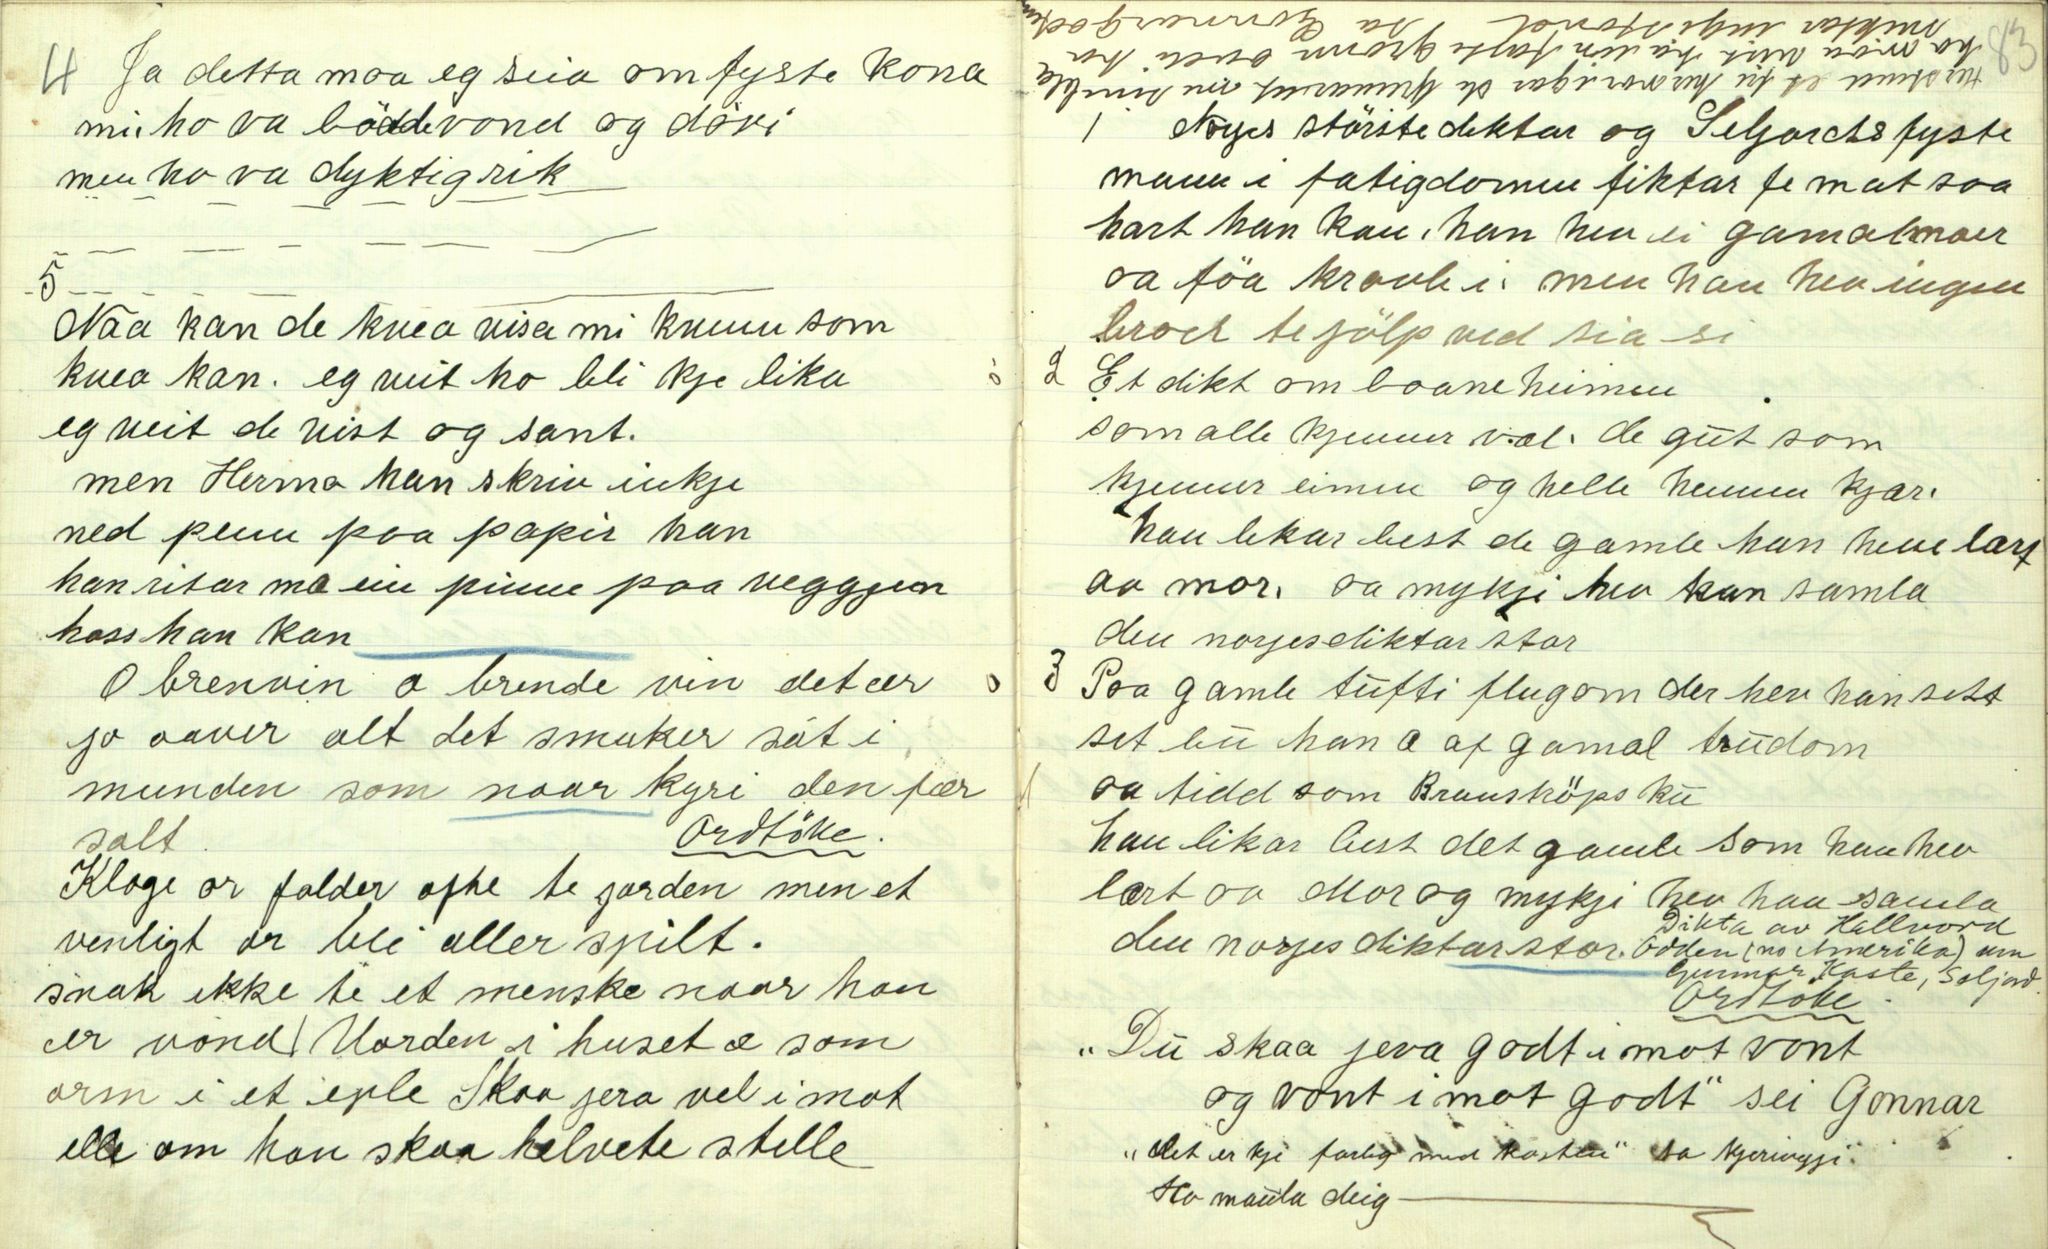 4 Ja detta moa eg seia om fyste kona
mi. ho va bådde vond og dövi
men ho va dyktig rik
5
Naa kan de kvea visa mi kvenn som
kvea kan. eg veit ho bli kje lika
eg veit de vist og sant.
men Herma han skriv inkje
ned penn paa papir han
han ritar mæ ein pinne paa veggjen
hoss han kan
O brenvin o brende vin det ær
jo aaver alt det smaker söt i
munden som naar kyri den fær
salt.
Ordtöke.
Kloge or falder ofte te jorden men et
venligt or bli aller spilt.
snak ikke te et menske naar han
er vond Uorden i huset æ som
orm i et eple Skaa jera vel i mot
elle om han skaa helvete stelle
83
1 Norjes störste diktar og Seljords fyste
mann i fatigdommen fiktar fe mat saa
hart han kan. han hev ei gamal moer
aa föa kravle i. men han hev ingen
broer te jölp ved sia si
2 Et dikt om baaneheimen
som alle kjenner væl. de gut som
kjenner eimen og helle hennen kjær.
han likar best de gamle han heve lært
av mor. aa mykji hev han samla
den norjesdiktar stor
3 Paa gamle tufti flugom der hev han sett
set bu han a af gamal trudom
aa tidd som Brunsköps ku
han likar best det gamle som han hev
lært av Mor og mykji hev han samla
den norjes diktar stor.
Dikta av Hallvord
Odden (no Amerika) um
Gunnar Kaste, Seljord.
Ordtöke.
"Du skaa jera godt i mot vont
og vont i mot godt" sei Gonnar
"det er kje farleg med kosten" sa kjeringji.
Ho maula deig